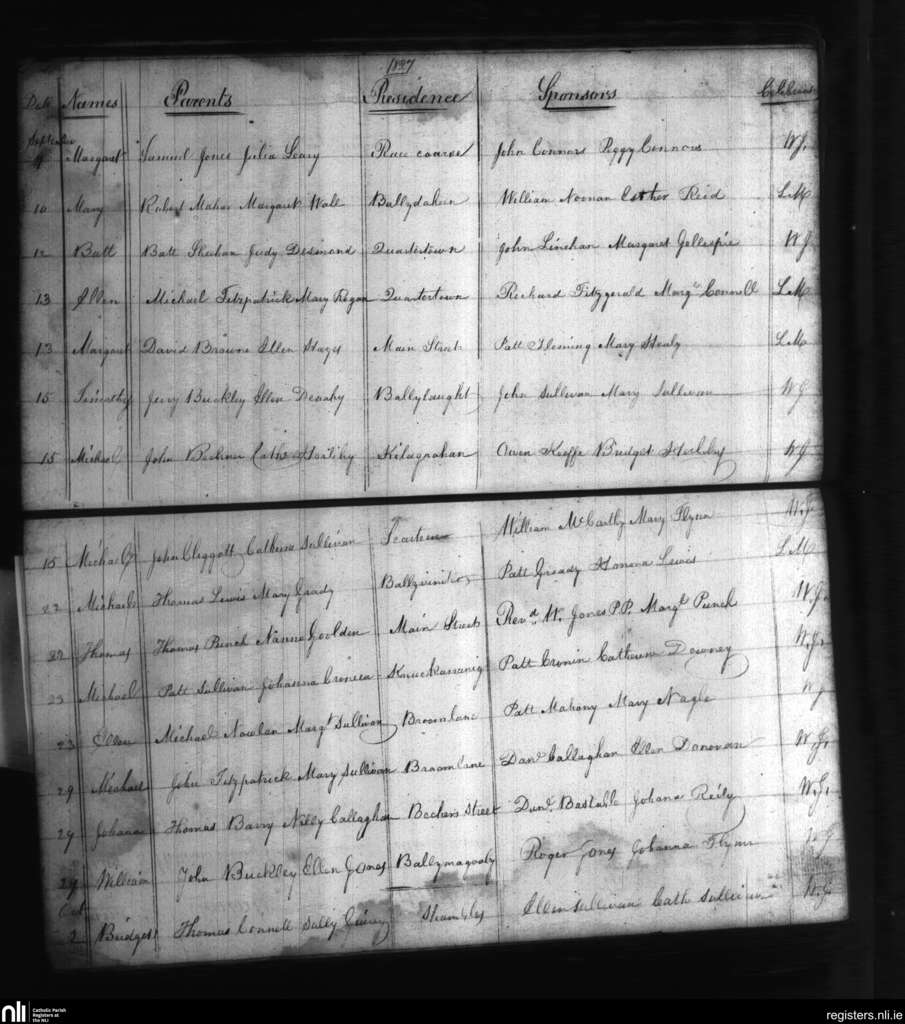 1827
Date Names Parents Residence Sponsors Celebrans
September
9 Margaret Samuel Jones Julia Leary Race coarse John Connors Peggy Connors W.J.
10 Mary Robert Maher Margaret Wall William Noonan Esther Reid L.M
12 Batt Batt Sheehan Judy Desmond Quartertown John Linehan Margaret Gellespie W J
13 Ellen Michael Fitzpatrick Mary Regan Quartertown Richard Fitzgerald Margt Connell L.M
13 Margaret David Browne Ellen Hayes Main Street Patt Fleming Mary Healy L.M
15 Timothy Jerry Buckley Ellen Denahy Ballylaught John Sullivan Mary Sullivan W J
15 Michael John Owen Keeffe Bridget W J
15 Michael John Cliggott Catherine Sullivan Scarteen William McCartby Mary Flynn W.J
22 Michael Thomas Lewis Mary Grady Ballyviniter Patt Gready Honora Lewis L M
22 Thomas Thomas Punch Nanno Goolden Main Street Revd. W. Jones P.P. Margt Punch W.J.
23 Michael Patt Sullivan Johanna Patt Cronin Catherine Downey W.J.
23 Ellen Michael Nowlan Margt Sullivan Broomlane Patt Mahony Mary Nagle W J
29 Michael John Fitzpatrick Mary Sullivan Broomlane Danl Callaghan Ellen Donovan W.J.
29 Johanna Thomas Barry Nelly Callaghan Beechers Street Danl. Bastable Johana Reily W.J.
29 William John Buckley Ellen Jones Ballymagooly Roger Jones Johanna Flynn W J
Oct
2 Bridget Thomas Connell Sally Shambles Ellen Sullivan Cath Sullivan W.J
nli Catholic Parish
Registers at
the NLI
registers.nli.ie